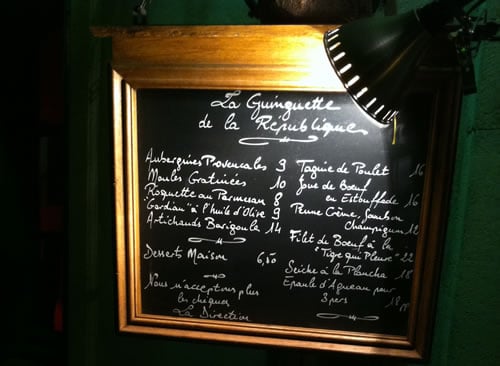 La Guinguette
de la République
Aubergines Provencales 9
Moules Gratinées 10
Roquette au Parmesan 8
"Gardian" à l'huile d'Olive 9
Artichauds Barigoule 14
Desserts Maison 6,50
Nous n'acceptons plus
les chèques
La Direction
Tagine de Poulet 16
Joue de Boeuf
en Estouffade 16
Penne Crème, Jambon
Champignon 12
Filet de Boeuf à la
"Tigre qui Pleure" 22
Seiche à la Plancha 18
Epaule d'Agneau pour
3 pers 18